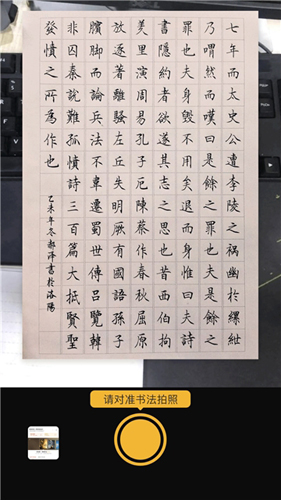 七年而太史公遭李陵之祸幽於縲紲
乃喟然而嘆曰是餘之罪也夫是餘之
罪也夫身毁不用矣退而深惟曰夫詩
書隱約者欲遂其志之思也昔西伯拘
羑里演周易孔子厄陳蔡作春秋屈原
放逐著離騷左丘失明厥有國語孫子
臏脚而論兵法不韋遷蜀世傳呂覽韓
非囚秦說難孤憤詩三百篇大抵賢聖
發憤之所為作也
乙未年冬郝澤書於洛陽
请对准书法拍照